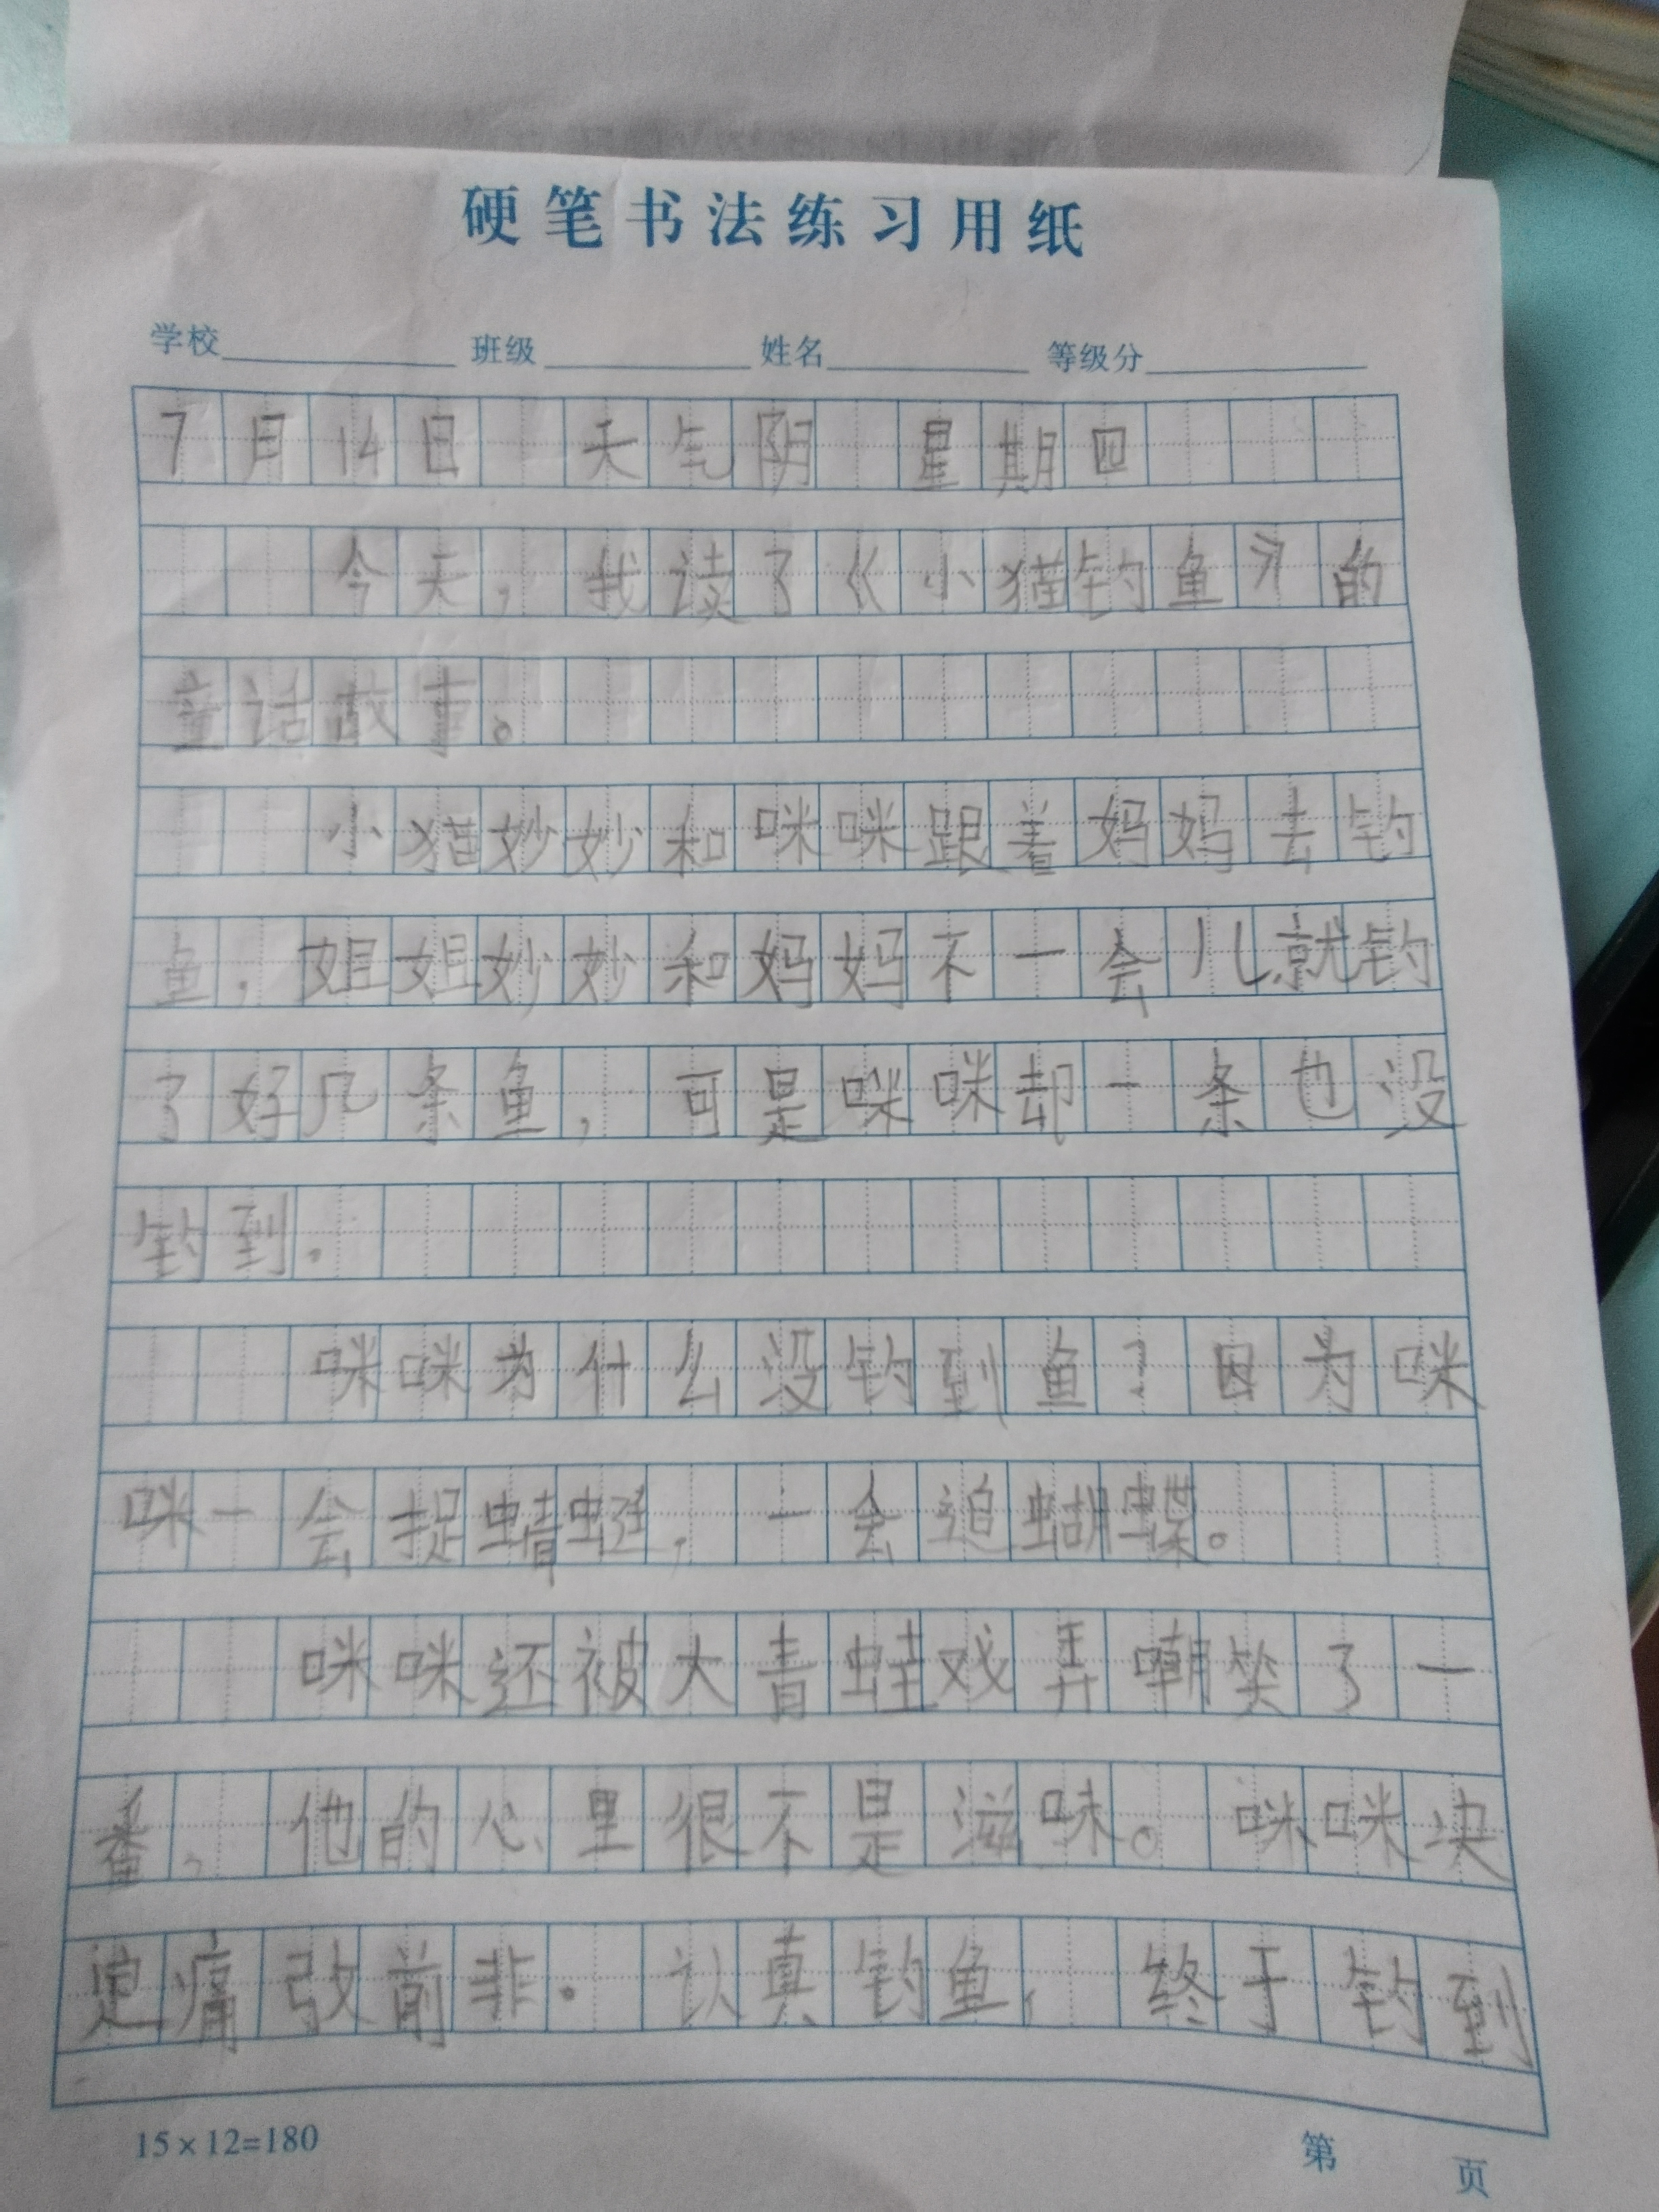 硬笔书法练习用纸
学校 班级 姓名 等级分
7月14日 天气阴 星期四
今天，我读了《小猫钓鱼》的
童话故事。
小猫妙妙和咪咪跟着妈妈去钓
鱼，姐姐妙妙和妈妈不一会儿就钓
了好几条鱼，可是咪咪却一条也没
钓到。
咪咪为什么没钓到鱼？因为咪
咪一会捉蜻蜓，一会追蝴蝶。
咪咪还被大青蛙戏弄嘲笑了一
番，他的心里很不是滋味。咪咪决
定痛改前非。认真钓鱼，终于钓到
15×12=180
第 页